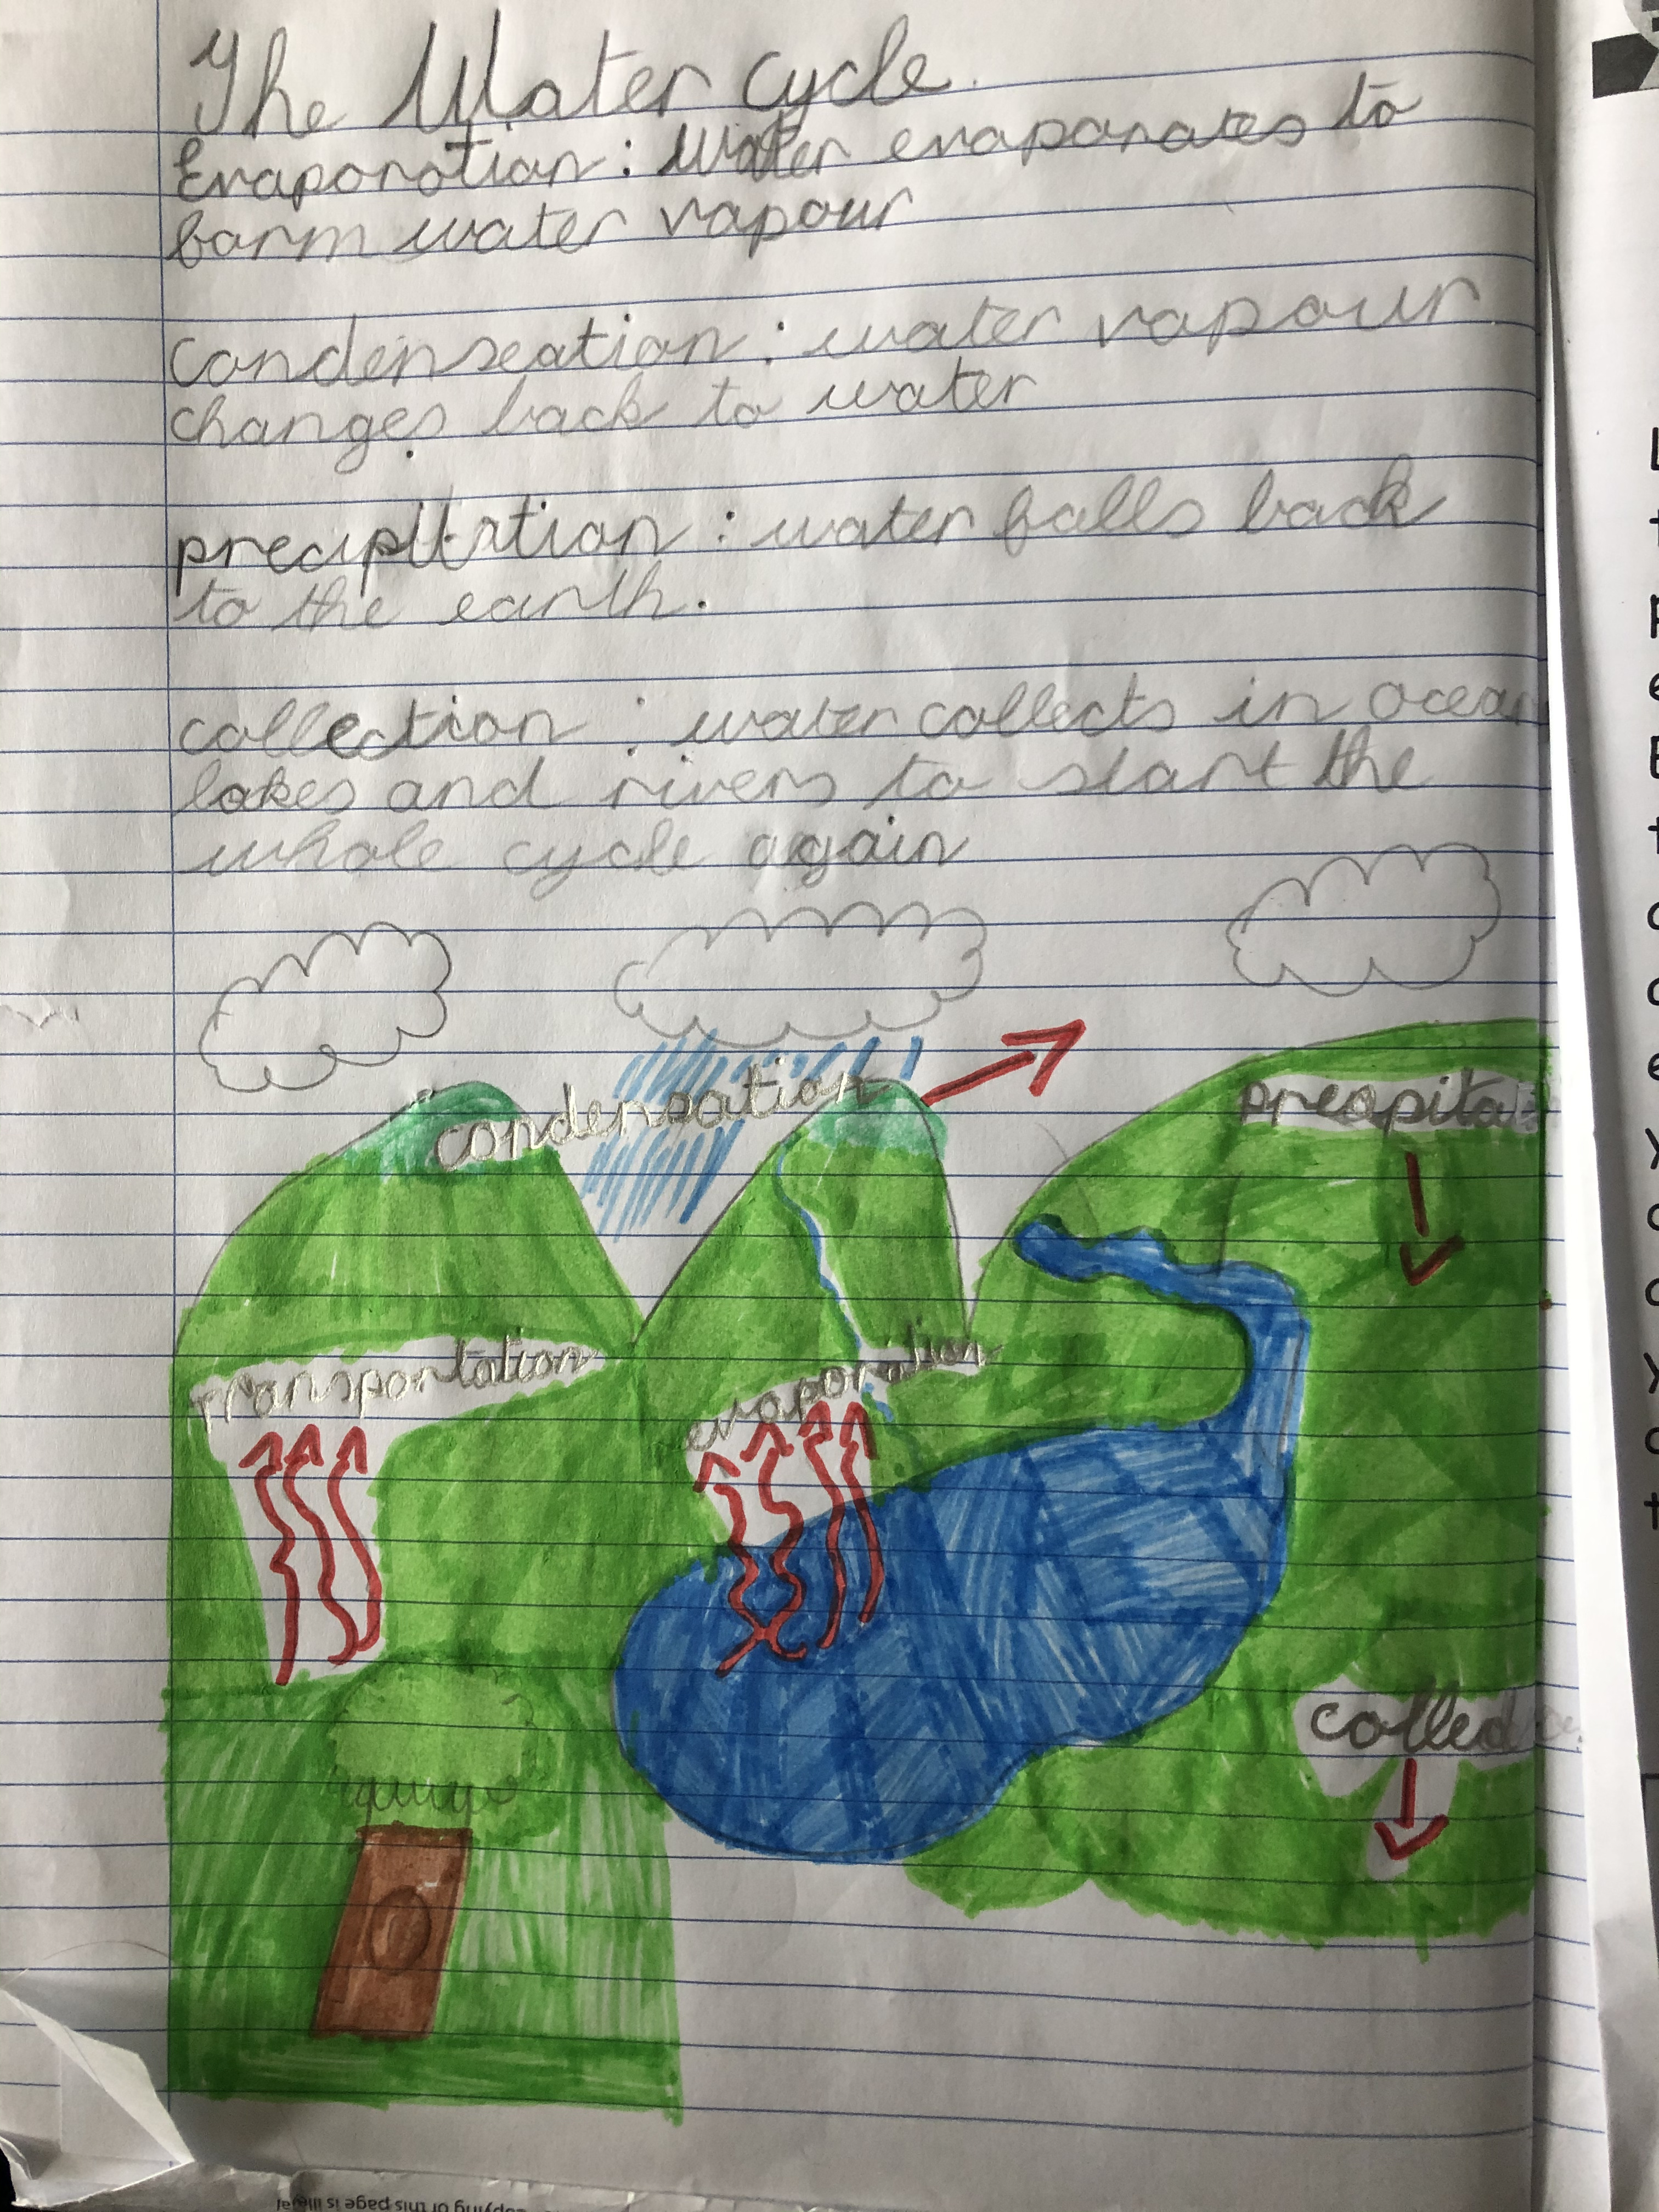 The Water Cycle.
Evaporation: Water evaporates to
form water vapour
Condenseation: water vapour
changes back to water
precipitation: water falls back
to the earth.
collection: water collects in ocean
lakes and rivers to start the
whole cycle again
condensation
precapita
Transportation
evaporation
copying of this page is illegal